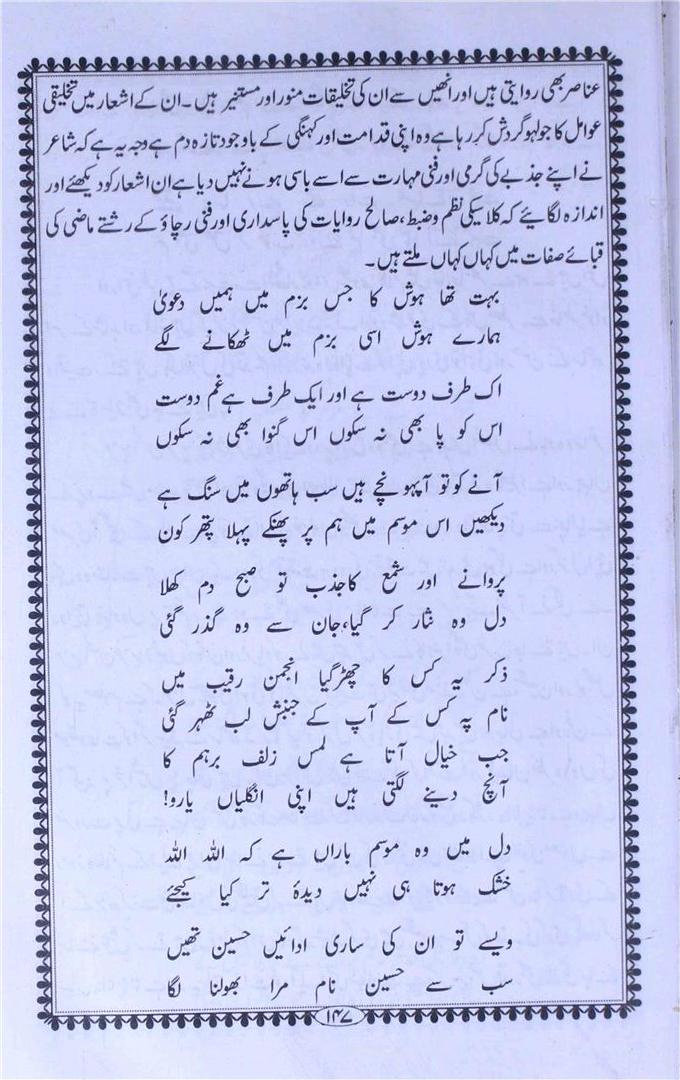 عناصر بھی روایتی ہیں اور انھیں سے ان کی تخلیقات منور اور مستنیر ہیں۔ ان کے اشعار میں تخلیقی
عوامل کا جو لہو گردش کر رہا ہے وہ اپنی قدامت اور کہنگی کے باوجود تازہ دم ہے وجہ یہ ہے کہ شاعر
نے اپنے جذبے کی گرمی اور فنی مہارت سے اسے باسی ہونے نہیں دیا ہے ان اشعار کو دیکھئے اور
اندازہ لگائیے کہ کلاسیکی نظم و ضبط، صالح روایات کی پاسداری اور فنی رچاؤ کے رشتے ماضی کی
قبائے صفات میں کہاں کہاں ملتے ہیں۔
بہت تھا ہوش کا جس بزم میں ہمیں دعویٰ
ہمارے ہوش اسی بزم میں ٹھکانے لگے
اک طرف دوست ہے اور ایک طرف ہے غم دوست
اس کو پا بھی نہ سکوں اس گنوا بھی نہ سکوں
آنے کو تو آپہونچے ہیں سب ہاتھوں میں سنگ ہے
دیکھیں اس موسم میں ہم پر پھنکے پہلا پتھر کون
پروانے اور شمع کا جذب تو صبح دم کھلا
دل وہ نثار کر گیا، جان سے وہ گذر گئی
ذکر یہ کس کا چھڑ گیا انجمن رقیب میں
نام پہ کس کے آپ کے جنبش لب ٹھہر گئی
جب خیال آتا ہے لمس زلف برہم کا
آنچ دینے لگتی ہیں اپنی انگلیاں یارو!
دل میں وہ موسم باراں ہے کہ اللہ اللہ
خشک ہوتا ہی نہیں دیدۂ تر کیا کیجئے
ویسے تو ان کی ساری ادائیں حسین تھیں
سب سے حسین نام مرا بھولنا لگا
۱۴۷